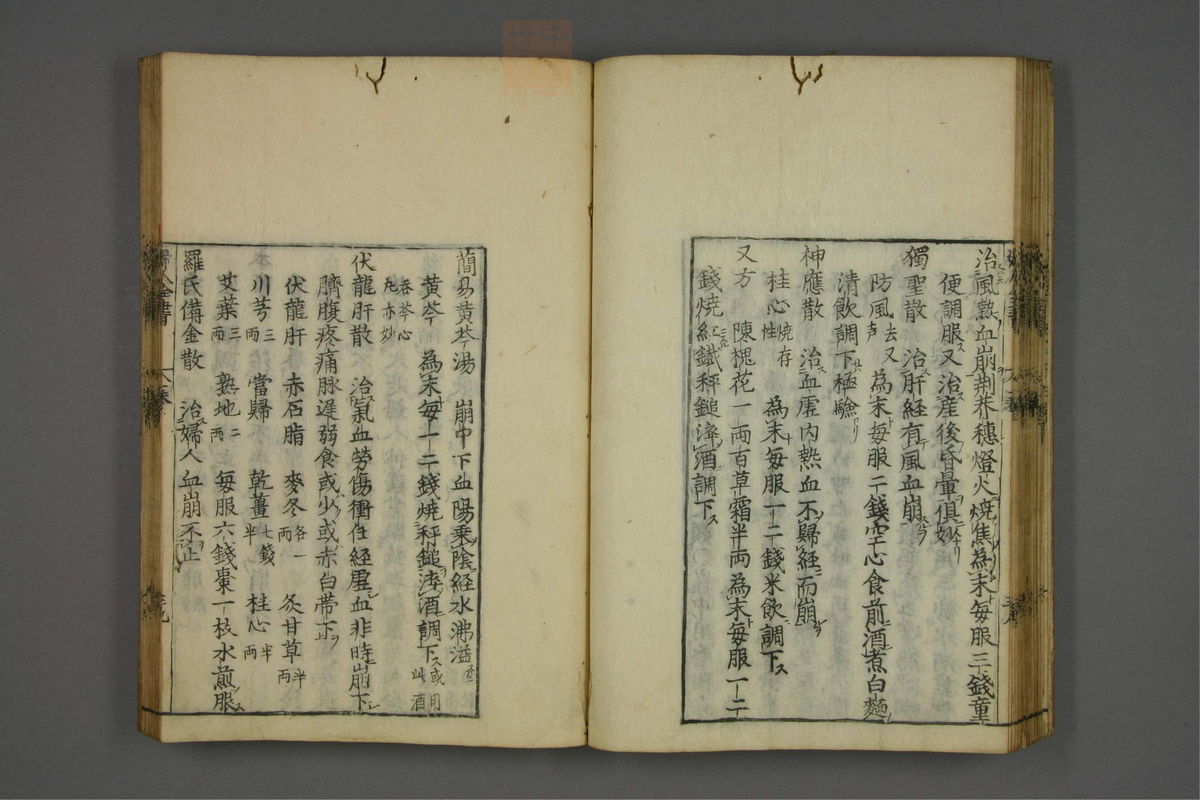 治風熱血崩荆芥穗燈火焼焦為末毎服三錢童
便調服又治産後昏暈俱妙
獨聖散　治肝経有風血崩
防風去又芦　為末毎服二錢空心食前酒煮白麵
清飲調下極驗
神應散　治血虚内熱血不歸経而崩
桂心焼存性　為末毎服一二錢米飲調下
又方　陳槐花一両百草霜半両為末毎服一二
錢焼紅鐵秤鎚淬酒調下
簡易黄芩湯　崩中下血陽乗陰経水沸溢
黄芩　為末毎一二錢焼秤鎚淬酒調下或用此酒
吞芩心丸亦妙
伏龍肝散　治氣血勞傷衝任経虚血非時崩下
臍腹疼痛脉遲弱食或少或赤白帶下
伏龍肝　赤石脂　麥冬各一両　炙甘草半両
川芎三両　當歸　乾薑七錢半　桂心半両
艾葉三両　熟地二両　毎服六錢棗一枚水煎服
羅氏備金散　治婦人血崩不止
婦人全書　八卷